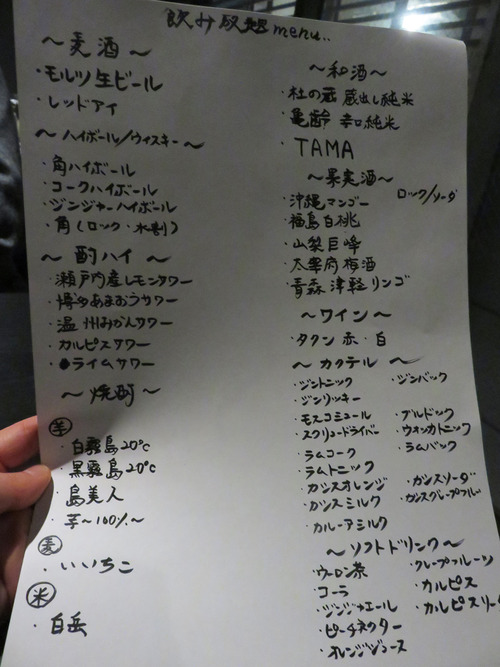 飲み放題menu..
〜麦酒〜
・モルツ生ビール
・レッドアイ
〜ハイボール/ウィスキー〜
・角ハイボール
・コークハイボール
・ジンジャーハイボール
・角(ロック・水割)
〜酎ハイ〜
・瀬戸内産レモンサワー
・博多あまおうサワー
・温州みかんサワー
・カルピスサワー
・ライムサワー
〜焼酎〜
芋
・白霧島20℃
・黒霧島20℃
・島美人
・芋〜100%〜
麦
・いいちこ
米
・白岳
〜和酒〜
・杜の蔵 蔵出し純米
・亀齢 辛口純米
・TAMA
〜果実酒〜 ロック/ソーダ
・沖縄マンゴー
・福島白桃
・山梨巨峰
・太宰府梅酒
・青森津軽リンゴ
〜ワイン〜
・タクン 赤・白
〜カクテル〜
・ジントニック ・ジンバック
・ジンリッキー
・モスコミュール ・ブルドック
・スクリュードライバー ・ウォッカトニック
・ラムコーク ・ラムバック
・ラムトニック
・カシスオレンジ ・カシスソーダ
・カシスミルク ・カシスグレープフル
・カルーアミルク
〜ソフトドリンク〜
・ウーロン茶 ・グレープフルーツ
・コーラ ・カルピス
・ジンジャエール ・カルピスソーダ
・ピーチネクター
・オレンジジュース